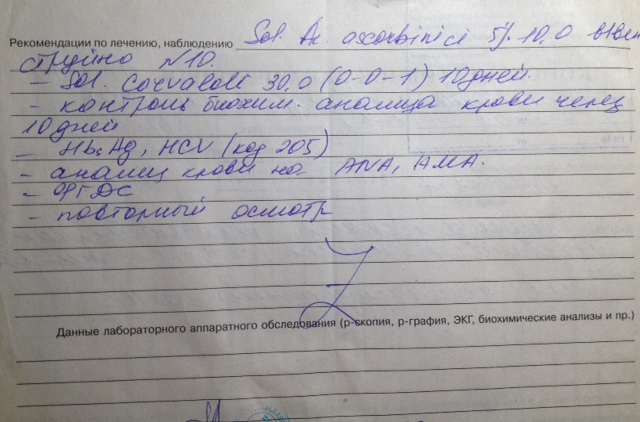 Рекомендации по лечению, наблюдению Sol. Ac. ascorbinici 5% 10,0 в/вен
струйно N10.
- Sol. Corvaloli 30,0 (0-0-1) 10 дней.
- контроль биохим. анализа крови через
10 дней
- HbsAg, HCV (код 205)
- анализ крови на ANA, AMA.
- ФГДС
- повторный осмотр
Данные лабораторного аппаратного обследования (р-скопия, р-графия, ЭКГ, биохимические анализы и пр.)